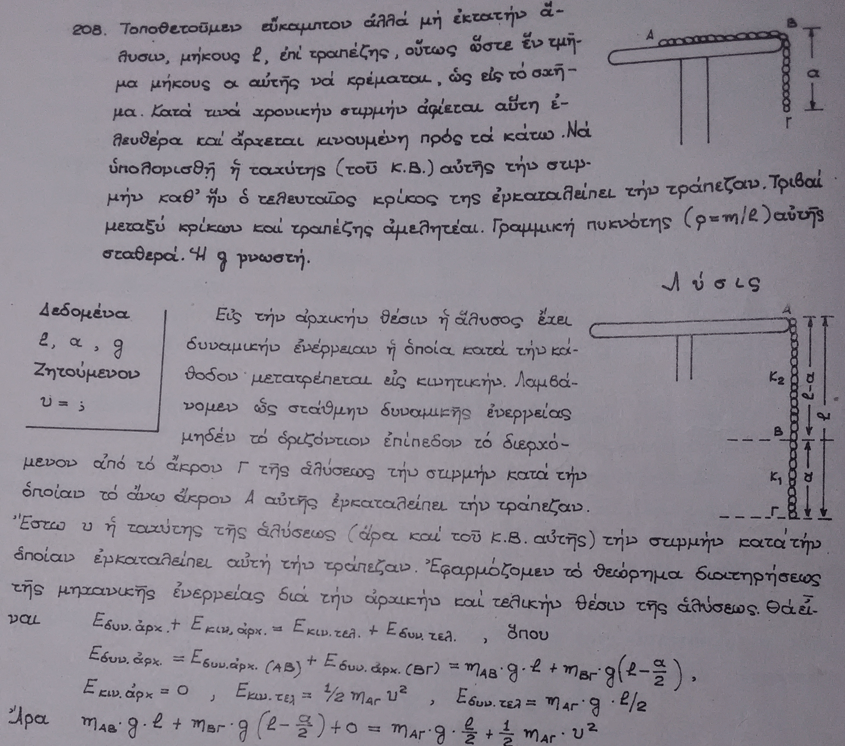 208. Τοποθετοῦμεν εὔκαμπτον ἀλλά μή ἐκτατήν ἅ-
λυσιν, μήκους ℓ, ἐπί τραπέζης, οὕτως ὥστε ἕν τμῆ-
μα μήκους α αὐτῆς νά κρέμαται, ὡς εἰς τό σχῆ-
μα. Κατά τινά χρονικήν στιγμήν ἀφίεται αὕτη ἐ-
λευθέρα καί ἄρχεται κινουμένη πρός τά κάτω. Νά
ὑπολογισθῇ ἡ ταχύτης (τοῦ Κ.Β.) αὐτῆς τήν στιγ-
μήν καθ' ἥν ὁ τελευταῖος κρίκος της ἐγκαταλείπει τήν τράπεζαν. Τριβαί
μεταξύ κρίκων καί τραπέζης ἀμελητέαι. Γραμμική πυκνότης (ρ=m/ℓ) αὐτῆς
σταθερά. Ἡ g γνωστή.
A
B
α
Γ
Λύσις
Δεδομένα
ℓ, α, g
Ζητούμενον
υ = ;
Εἰς τήν ἀρχικήν θέσιν ἡ ἅλυσος ἔχει
δυναμικήν ἐνέργειαν ἡ ὁποία κατά τήν κά-
θοδον μετατρέπεται εἰς κινητικήν. Λαμβά-
νομεν ὡς στάθμην δυναμικῆς ἐνεργείας
μηδέν τό ὁριζόντιον ἐπίπεδον τό διερχό-
μενον ἀπό τό ἄκρον Γ τῆς ἁλύσεως τήν στιγμήν κατά τήν
ὁποίαν τό ἄνω ἄκρον Α αὐτῆς ἐγκαταλείπει τήν τράπεζαν.
Ἔστω υ ἡ ταχύτης τῆς ἁλύσεως (ἄρα καί τοῦ Κ.Β. αὐτῆς) τήν στιγμήν κατά τήν
ὁποίαν ἐγκαταλείπει αὐτή τήν τράπεζαν. Ἐφαρμόζομεν τό θεώρημα διατηρήσεως
τῆς μηχανικῆς ἐνεργείας διά τήν ἀρχικήν καί τελικήν θέσιν τῆς ἁλύσεως. Θά εἶ-
ναι Eδυν. ἀρχ. + Eκιν. ἀρχ. = Eκιν. τελ. + Eδυν. τελ. , ὅπου
Eδυν. ἀρχ. = Eδυν. ἀρχ. (ΑΒ) + Eδυν. ἀρχ. (ΒΓ) = mΑΒ·g·ℓ + mΒΓ·g(ℓ-α/2),
Eκιν. ἀρχ = 0 , Eκιν. τελ = 1/2 mΑΓ υ² , Eδυν. τελ = mΑΓ·g·ℓ/2
Ἄρα mΑΒ·g·ℓ + mΒΓ·g (ℓ-α/2)+0 = mΑΓ·g·ℓ/2 + 1/2 mΑΓ·υ²
A
K₂
ℓ-α
ℓ
B
K₁
α
Γ